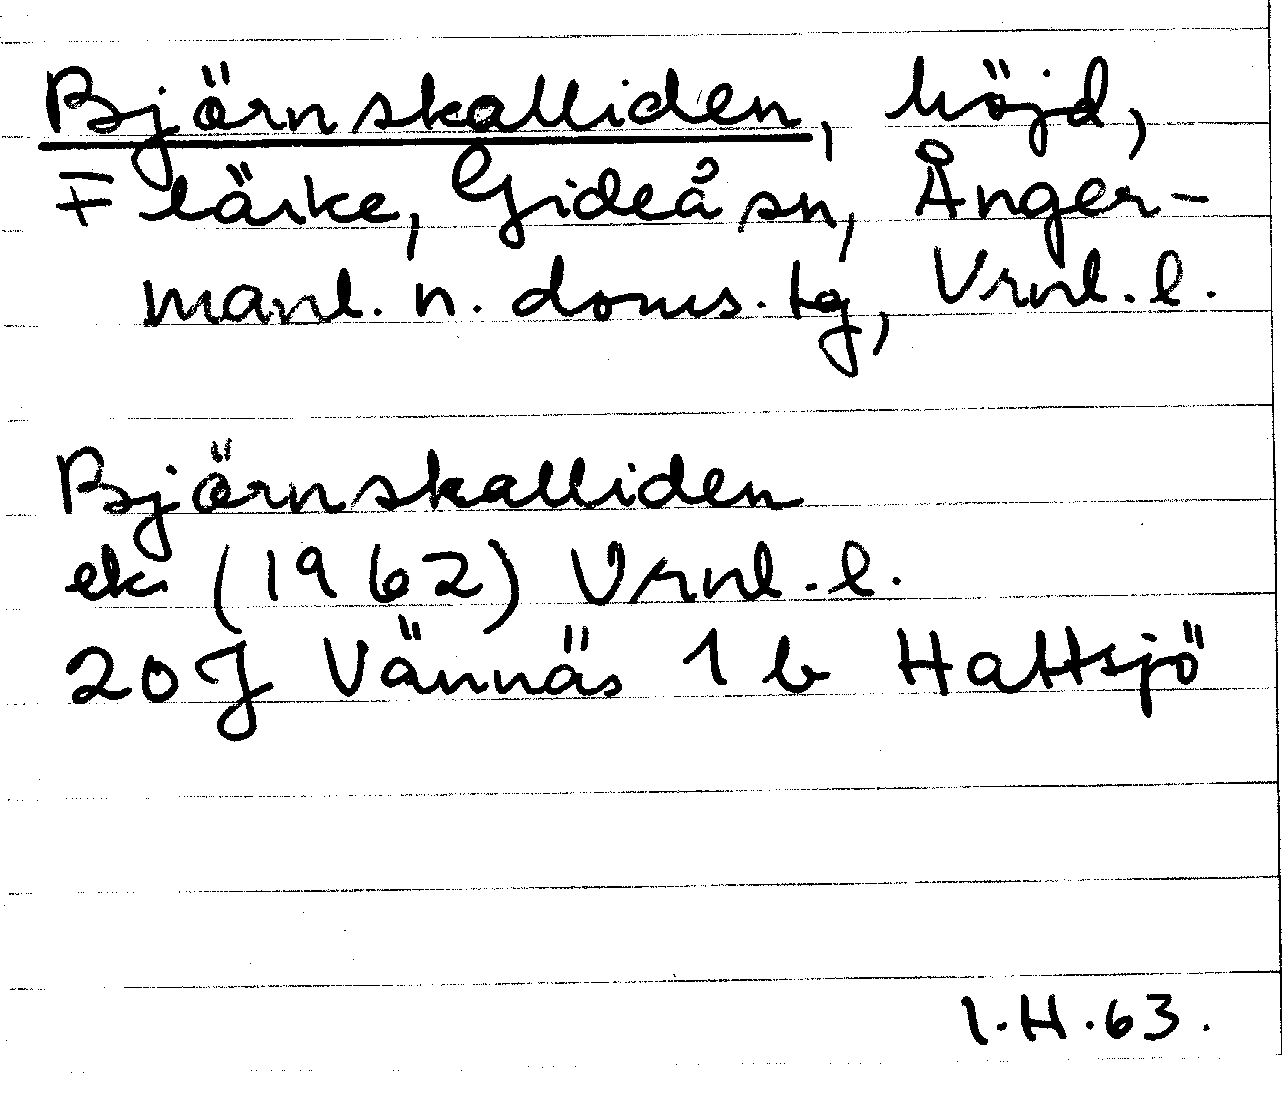 Björnskalliden, höjd,
Flärke, Gideå sn, Ånger-
manl. n. doms. tg, Vrnl. l.
Björnskalliden
ek (1962) Vrnl. l.
20J Vännäs 1 b Hattsjö
I.H.63.